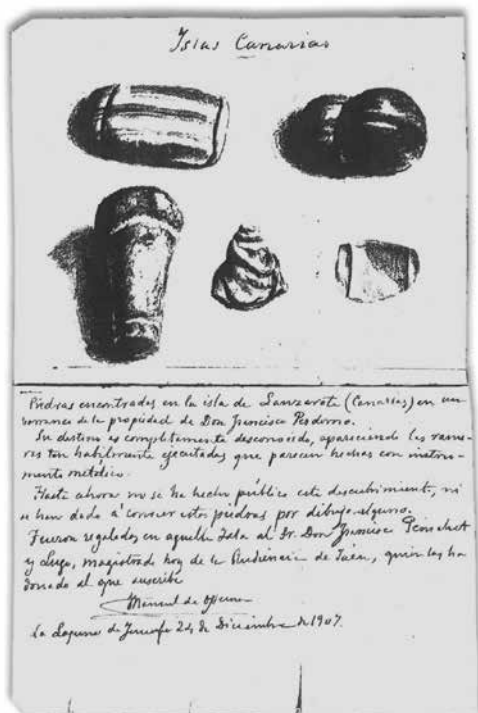 Islas Canarias
Piedras encontradas en la isla de Lanzarote (Canarias) en un
barranco de la propiedad de Don Francisco Perdomo.
Su destino es completamente desconocido, apareciendo las ranu-
ras tan hábilmente ejecutadas que parecen hechas con instru-
mento metálico.
Hasta ahora no se ha hecho público este descubrimiento, ni
se han dado á conocer estas piedras por dibujo alguno.
Fueron regaladas en aquella Isla al Sr. Don Francisco
y Lugo, magistrado hoy de la Audiencia de Jaén, quien las ha
donado al que suscribe
Manuel de Ossuna
La Laguna de Tenerife 24 de Diciembre de 1907.